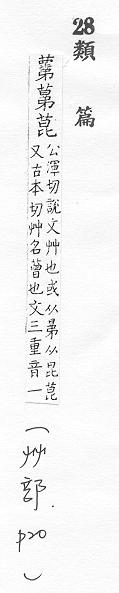 28 類篇
菎
公渾切說文艸也或从弟从昆菎
又古本切艸名也文三重音一
(艸部. p20)